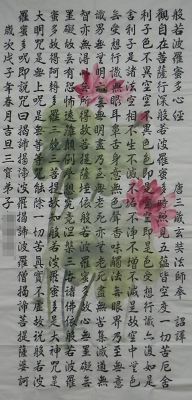 般若波羅蜜多心經　唐三藏玄奘法師奉　詔譯
觀自在菩薩行深般若波羅蜜多時照見五蘊皆空度一切苦厄舍
利子色不異空空不異色色即是空空即是色受想行識亦復如是
舍利子是諸法空相不生不滅不垢不淨不增不減是故空中無色
無受想行識無眼耳鼻舌身意無色聲香味觸法無眼界乃至無意
識界無無明亦無無明盡乃至無老死亦無老死盡無苦集滅道無
智亦無得以無所得故菩提薩埵依般若波羅蜜多故心無罣礙無
罣礙故無有恐怖遠離顛倒夢想究竟涅槃三世諸佛依般若波羅
蜜多故得阿耨多羅三藐三菩提故知般若波羅蜜多是大神咒是
大明咒是無上咒是無等等咒能除一切苦真實不虛故說般若波
羅蜜多咒即說咒曰揭諦揭諦波羅揭諦波羅僧揭諦菩提薩婆訶
歲次戊子年春月吉旦三寶弟子